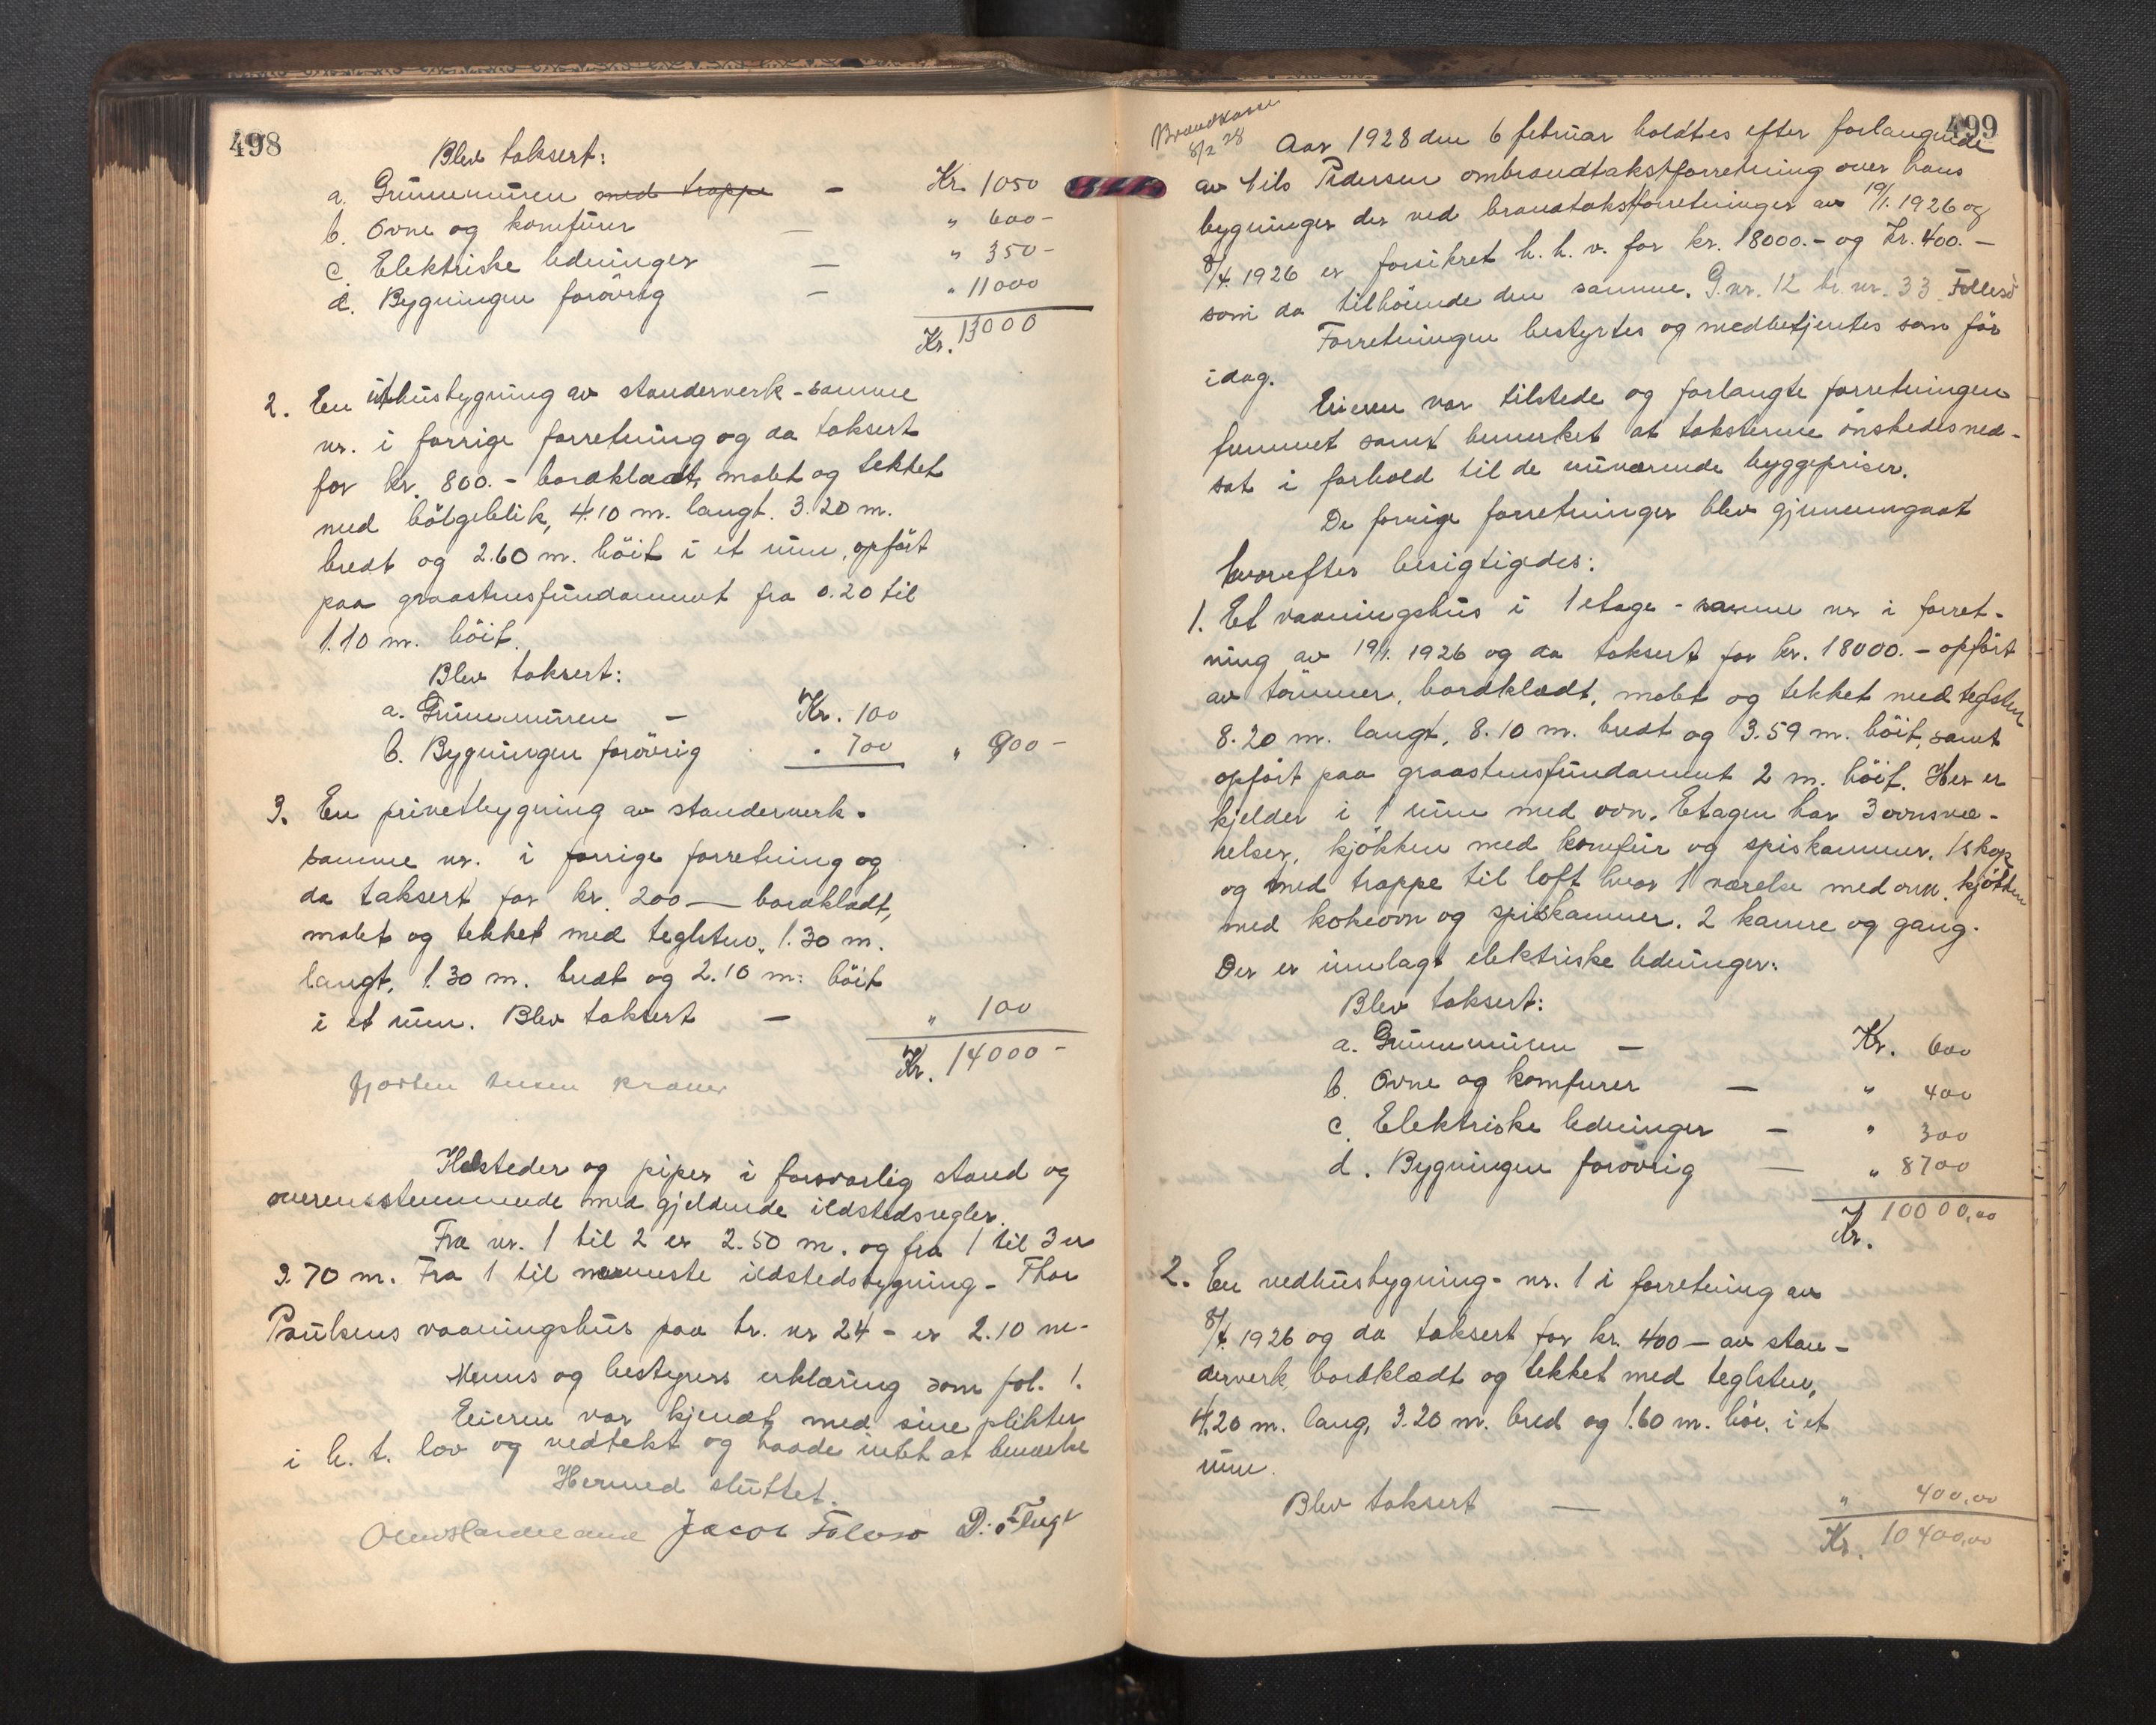 498
Blev taksert:
a. Grunnmuren med trappe - Kr. 1050
b. Ovne og komfurer — " 600-
c. Elektriske ledninger — " 350-
d. Bygningen forøvrig — " 11000
Kr. 13000
2. En uthusbygning av standerverk - samme
nr. i forrige forretning og da taksert
for kr. 800.- bordklædt, malet og tekket
med bölgeblik, 4.10 m. langt. 3.20 m.
bredt og 2.60 m. höit i et rum, opfört
paa graastensfundament fra 0.20 til
1.10 m. höit.
Blev taksert:
a. Grunnmuren - Kr. 100
b. Bygningen forövrig " 700 " 900-
3. En privetbygning av standerverk -
samme nr. i forrige forretning og
da taksert for kr. 200— bordklædt,
malet og tekket med teglsten, 1.30 m.
langt, 1.30 m. bredt og 2.10 m. höit
i et rum. Blev taksert — " 100
Kr. 14000-
fjorten tusen kroner
Ildsteder og piper i forsvarlig stand og
overensstemmende med gjeldende ildstedsregler.
Fra nr. 1 til 2 er 2.50 m. og fra 1 til 3 er
3.70 m. Fra 1 til nærmeste ildstedsbygning - Thor
Paulsens vaaningshus paa br. nr 24 - er 2.10 m-
Menns og bestyrers erklæring som fol. 1.
Eieren var kjendt med sine plikter
i h. t. lov og vedtekt og havde intet at bemerke
Hermed sluttet.
Jacob Folleso D. Flugt
499
Brandkasse
8/2 28
Aar 1928 den 6 februar holdtes efter forlangende
av Nils Pedersen ombrandtakstforretning over hans
bygninger der ved brandtakstforretninger av 19/1. 1926 og
8/4. 1926 er forsikret h. h. v. for kr. 18000.- og Kr. 400.-
som da tilhörende den samme. G.nr. 12 br. nr. 33 Follesö
Forretningen bestyrtes og medbetjentes som för
idag.
Eieren var tilstede og forlangte forretningen
fremmet samt bemerket at taksterne önskedes ned-
sat i forhold til de nuværende byggepriser.
De forrige forretninger blev gjennemgaat
hvorefter besigtigedes:
1. Et vaaningshus i 1 etage - samme nr i forret-
ning av 19/1. 1926 og da taksert for kr. 18000.- opfört
av tömmer, bordklædt, malet og tekket med teglsten
8.20 m. langt, 8.10 m. bredt og 3.59 m. höit, samt
opfört paa graastensfundament 2 m. höit. Her er
kjelder i 1 rum med ovn. Etagen har 3 ovnsvæ-
relser, kjökken med komfur og spiskammer. 1 skap
og med trappe til loft hvor 1 værelse med ovn, kjökken
med kokeovn og spiskammer. 2 kamre og gang.
Der er innlagt elektriske ledninger.
Blev taksert:
a. Grunnmuren — Kr. 600
b. Ovne og komfurer — " 400
c. Elektriske ledninger - " 300
d. Bygningen forövrig — " 8700
Kr. 10000,00
2. En vedhusbygning - nr. 1 i forretning av
8/4. 1926 og da taksert for kr. 400 — av stan-
derverk, bordklædt og tekket med teglsten,
4,20 m. lang, 3.20 m. bred og 1.60 m. höi, i et
rum.
Blev taksert — " 400,00
Kr. 10400,00